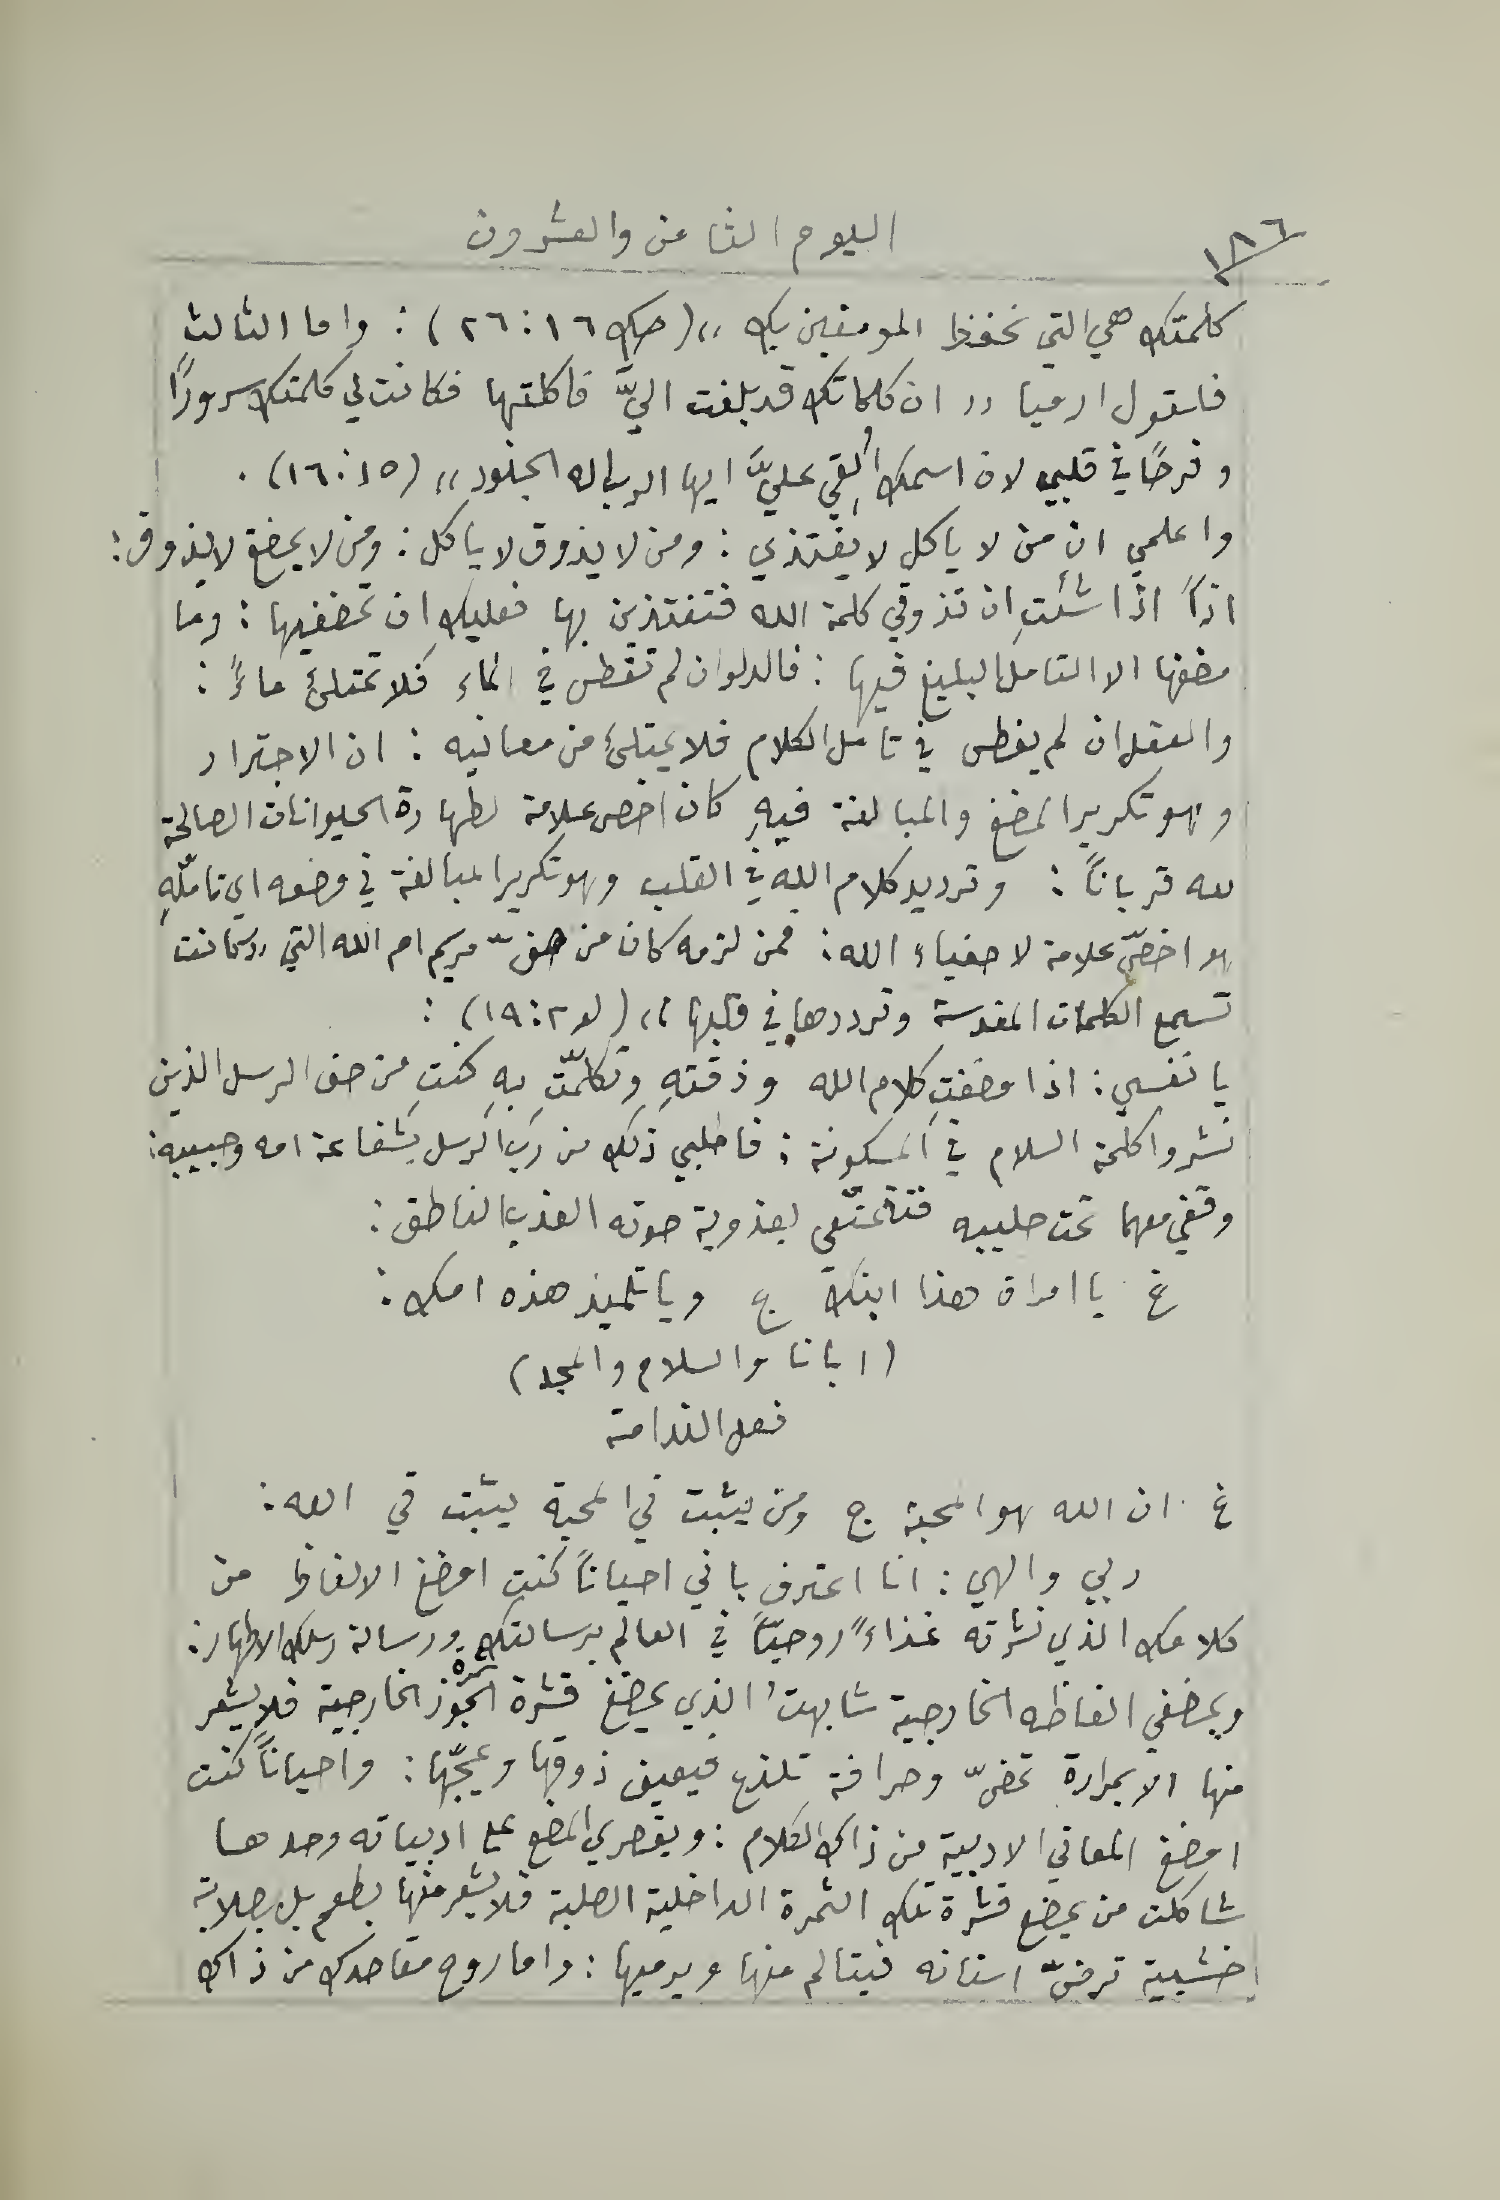 ١٨٦
اليوم الثامن والعشرون
كلمتك هي التي تحفظ المومنين بك ،، (حك ١٦:٢٦) : واما الثالث
فلقول ارميا ,, ان كلماتك قد بلغت اليَّ فاكلتها فكانت لي كلمتك سرورًا
وفرحًا في قلبي لان اسمك اُلقي عليَّ ايها الرب اله الجنود ،، (١٥:١٦) .
واعلمي ان من لا ياكل لا يغتذي : ومن لا يذوق لا ياكل : ومن لا يمضغ لا يذوق :
اذاً اذا شئتِ ان تذوقي كلمة الله فتغتذين بها فعليكِ ان تمضغيها : وما
مضغها الا التامل البليغ فيها : فالدلو ان لم تغطس في الماء فلا تمتلئ ماءً :
والعقل ان لم يغطس في تامل الكلام فلا يمتلئ من معانيه : ان الاجترار
وهو تكرير المضغ والمبالغة فيهِ كان اخص علامة لطهارة الحيوانات الصالحة
لله قرباناً : وترديد كلام الله في القلب وهو تكرير المبالغة في مضغه اي تاملّهِ
هو اخصّ علامة لاصفياء الله : فمن لزمه كان من صفّ مريم ام الله التي ,, كانت
تسمع الكلمات المقدسة وترددها في قلبها ،، (لو ٢:١٩) :
يا نفسي : اذا مضغتِ كلام الله وذقتهِ وتكلّمتِ بهِ كنتِ من صف الرسل الذين
نشروا كلمة السلام في المسكونة : فاطلبي ذلك من رب الرسل بشفاعة امه وحبيبه :
وقفي معهما تحت صليبه فتتمتّعي بعذوبة صوته العذب الناطق :
غ يا امراة هذا ابنكِ ج ويا تلميذ هذه امك :
(ابانا والسلام والمجد)
فعل الندامة
غ ان الله هو المحبة ج ومن يثبت في المحبة يثبت في الله :
ربي والهي : انا اعترف باني احياناً كنت امضغ الالفاظ من
كلامك الذي نشرته غذاءً روحيّاً في العالم برسالتك ورسالة رسلك الاطهار :
وبمضغي الفاظه الخارجية شابهتُ الذي يمضغ قشرة الجَوْز الخارجية فلا يشعر
منها الا بمرارة تمضّ وحرافة تلذع فيعيف ذوقها ويمجّها : واحياناً كنت
امضغ المعاني الادبية من ذاك الكلام : وبقصري المضغ على ادبياته وحدها
شاكلت من يمضغ قشرة تلك الثمرة الداخلية الصلبة فلا يشعر منها بطعم بل بصلابة
خشبية ترضّ اسنانه فيتالم منها ويرميها : واما روح مقاصدك من ذاك